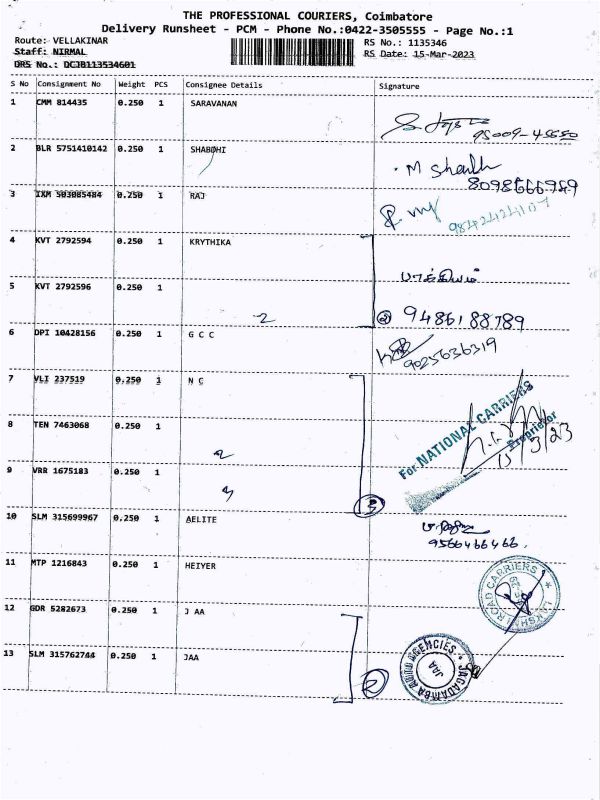 THE PROFESSIONAL COURIERS, Coimbatore
Delivery Runsheet - PCM - Phone No.:0422-3505555 - Page No.:1
Route: VELLAKINAR
RS No.: 1135346
Staff: NIRMAL
RS Date: 15-Mar-2023
DRS No.: DCJB113534601
S No Consignment No Weight PCS Consignee Details Signature
1 CMM 814435 0.250 1 SARAVANAN
95009-45550
2 BLR 5751410142 0.250 1 SHABDHI
M
8098666949
3 IXM 503085484 0.250 1 RAJ
9842424107
4 KVT 2792594 0.250 1 KRYTHIKA
பாக்கியம்
5 KVT 2792596 0.250 1
2 9486188789
6 DPI 10428156 0.250 1 G C C
9025636319
7 VLI 237519 0.250 1 N C
For NATIONAL CARRIERS
8 TEN 7463068 0.250 1
2
15/3/23
Proprietor
9 VRR 1675183 0.250 1
3
3
10 SLM 315699967 0.250 1 AELITE
9566466466.
11 MTP 1216843 0.250 1 HEIYER
ROAD CARRIERS
12 GDR 5282673 0.250 1 J AA
13 SLM 315762744 0.250 1 JAA
2
JAGADAMBA AUTO AGENCIES
JAA